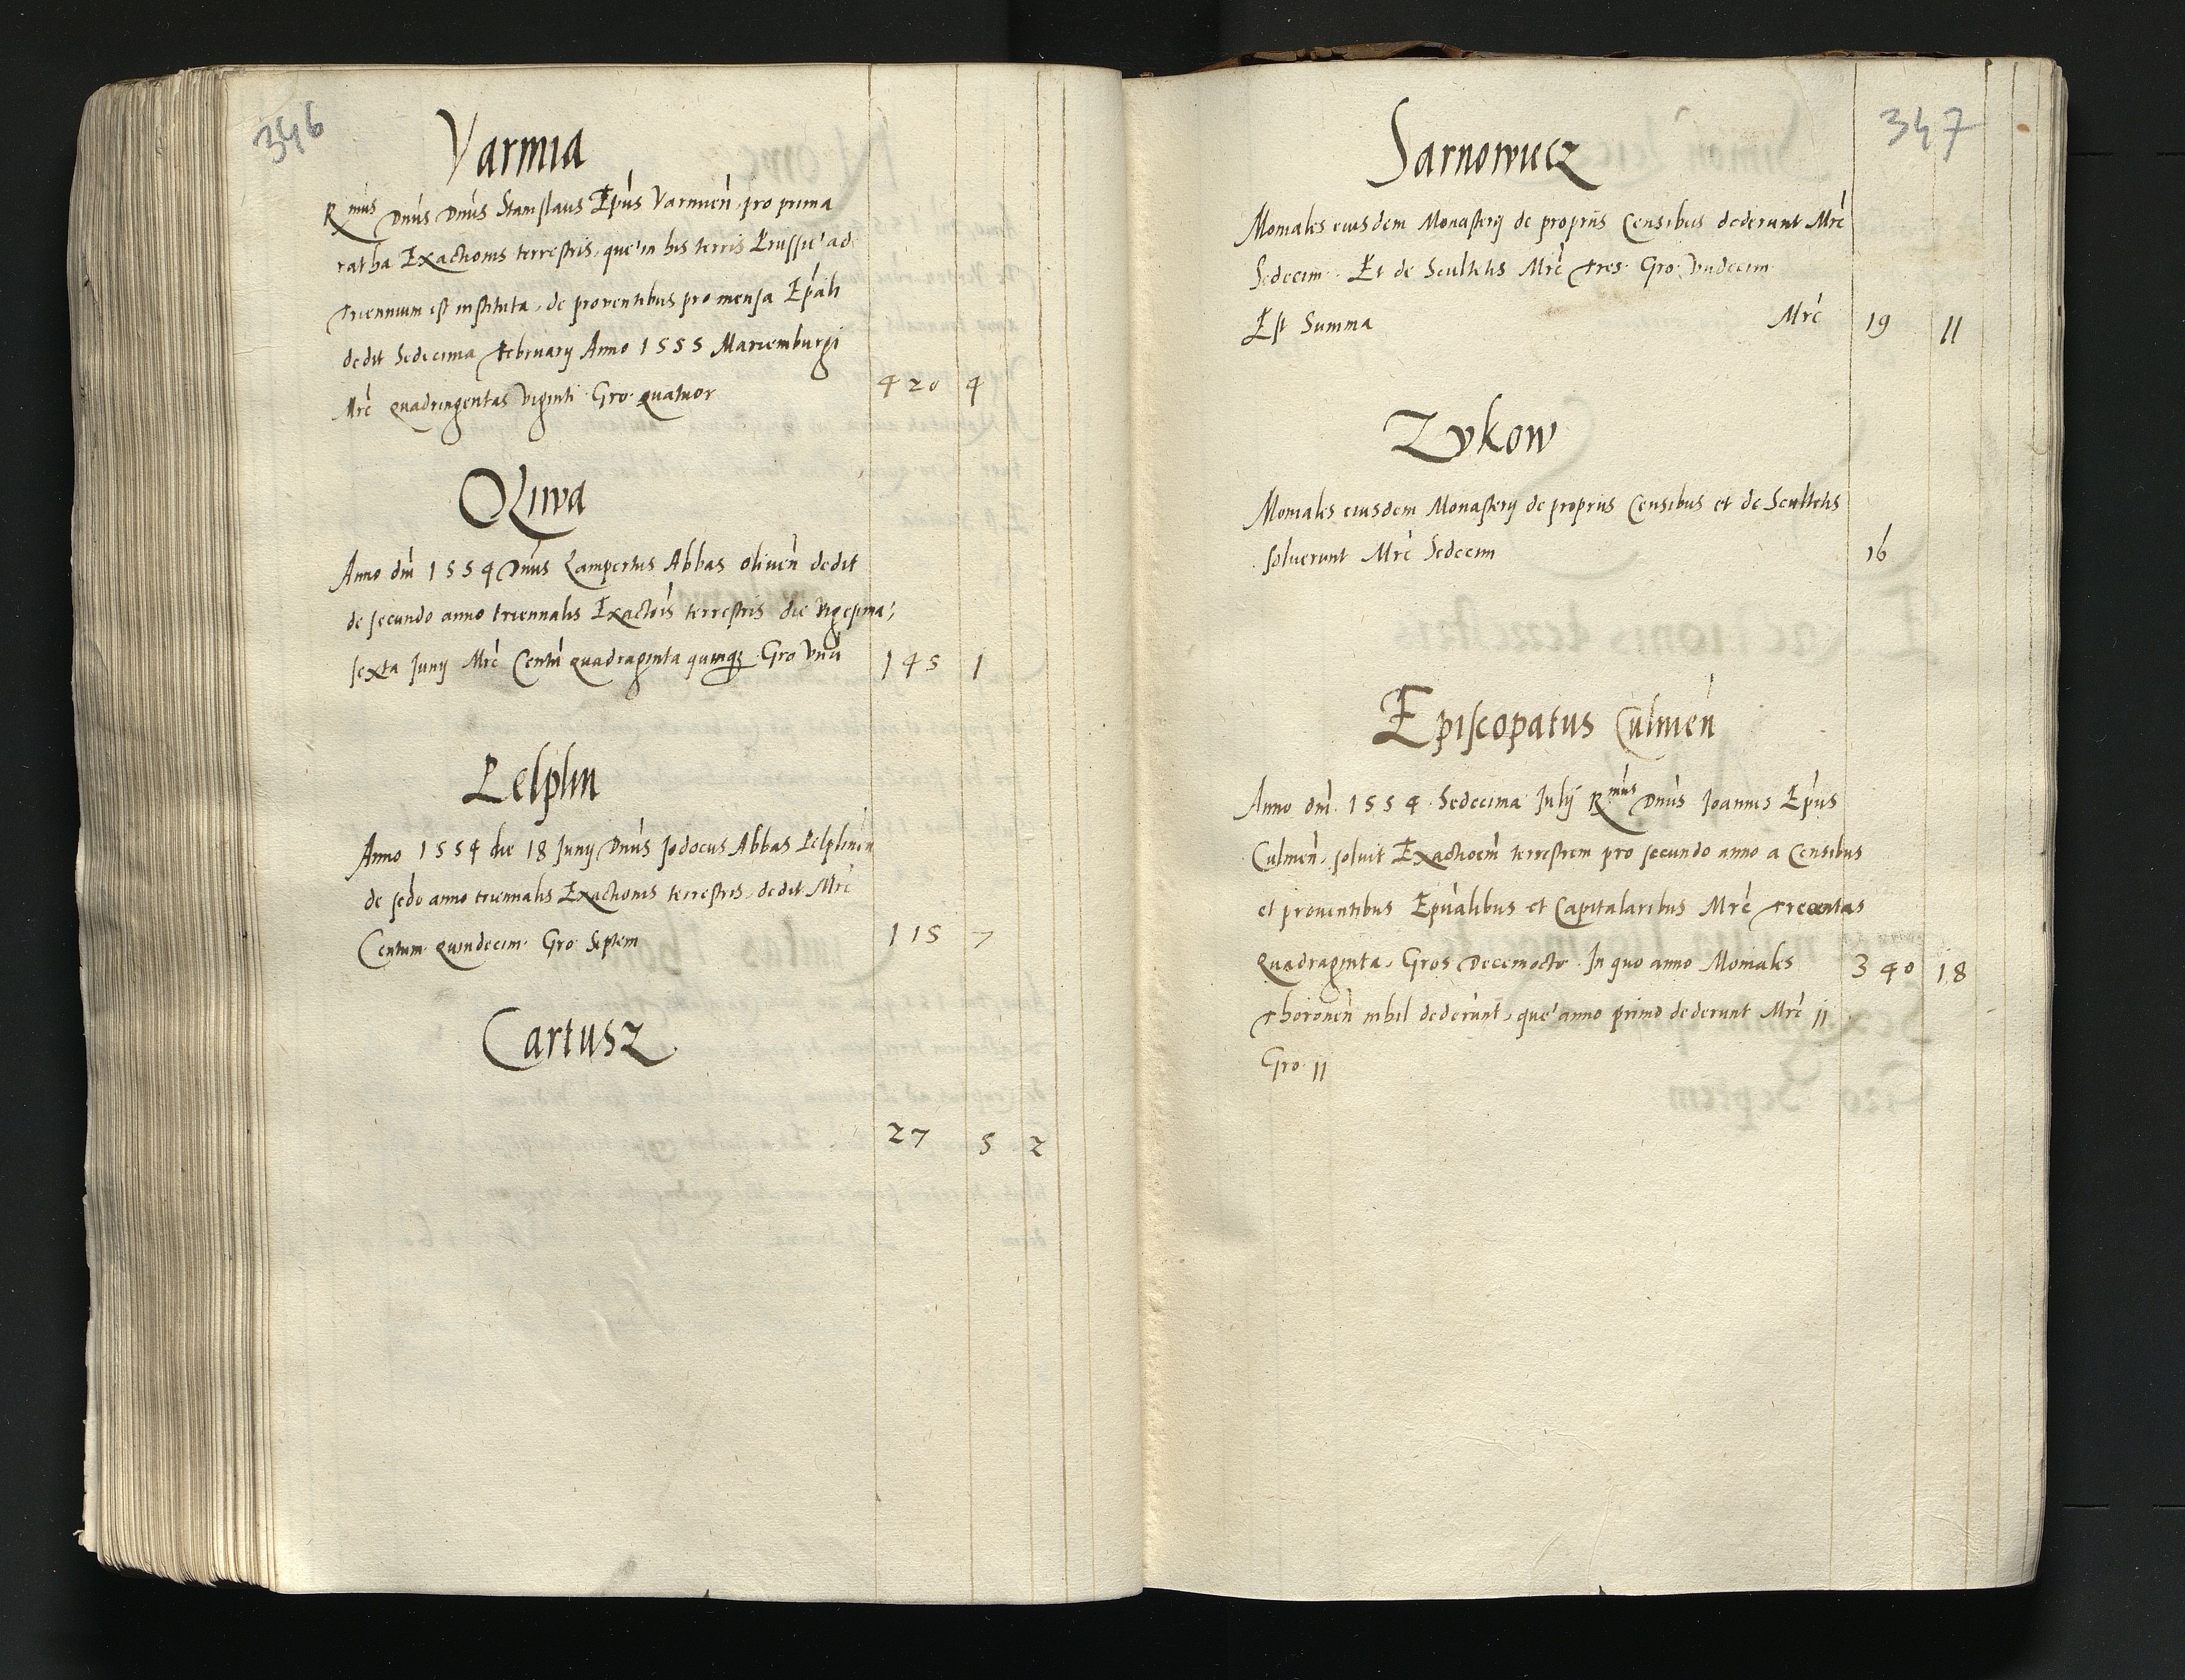 346
Varmia
R mus Dnus Dnus Stanislaus Epus Varmien, pro prima
ratha Exactionis terrestris, que in his terris Prussie ad
triennium est instituta, de proventibus pro mensa Epali
dedit Sedecima February Anno 1555 Mariemburgi
Mrc quadringentas viginti Gro quatuor 420 4
Oliwa
Anno dni 1554 Dnus Lampertus Abbas oliven dedit
de secundo anno triennalis Exactois terrestris die vigesima
sexta Juny Mrc Centu quadraginta quinq Gro unu 145 1
Pelplin
Anno 1554 die 18 Juny Dnus Jodocus Abbas Pelplinen
de sedo anno triennalis Exactionis terrestris, dedit Mrc
Centum quindecim Gro Septem 115 7
Cartusz
27 5 2
347
Sarnowiecz
Moniales eiusdem Monastery de proprijs Censibus dederunt Mrc
Sedecim. Et de Scultetis Mrc tres Gro Undecim
Est Summa Mrc 19 11
Zvkow
Moniales eiusdem Monastery de proprijs Censibus et de Scultetis
solverunt Mrc Sedecim 16
Episcopatus Culmen
Anno dni 1554 Sedecima July R mus Dnus Joannes Epus
Culmen, solvit Exactioem terrestrem pro secundo anno a Censibus
et proventibus Epualibus et Capitalaribus Mrc trecentas
Quadraginta, Gros Decemocto. In quo anno Moniales 340 18
Thoronen nihil dederunt, que anno primo dederunt Mrc 11
Gro 11